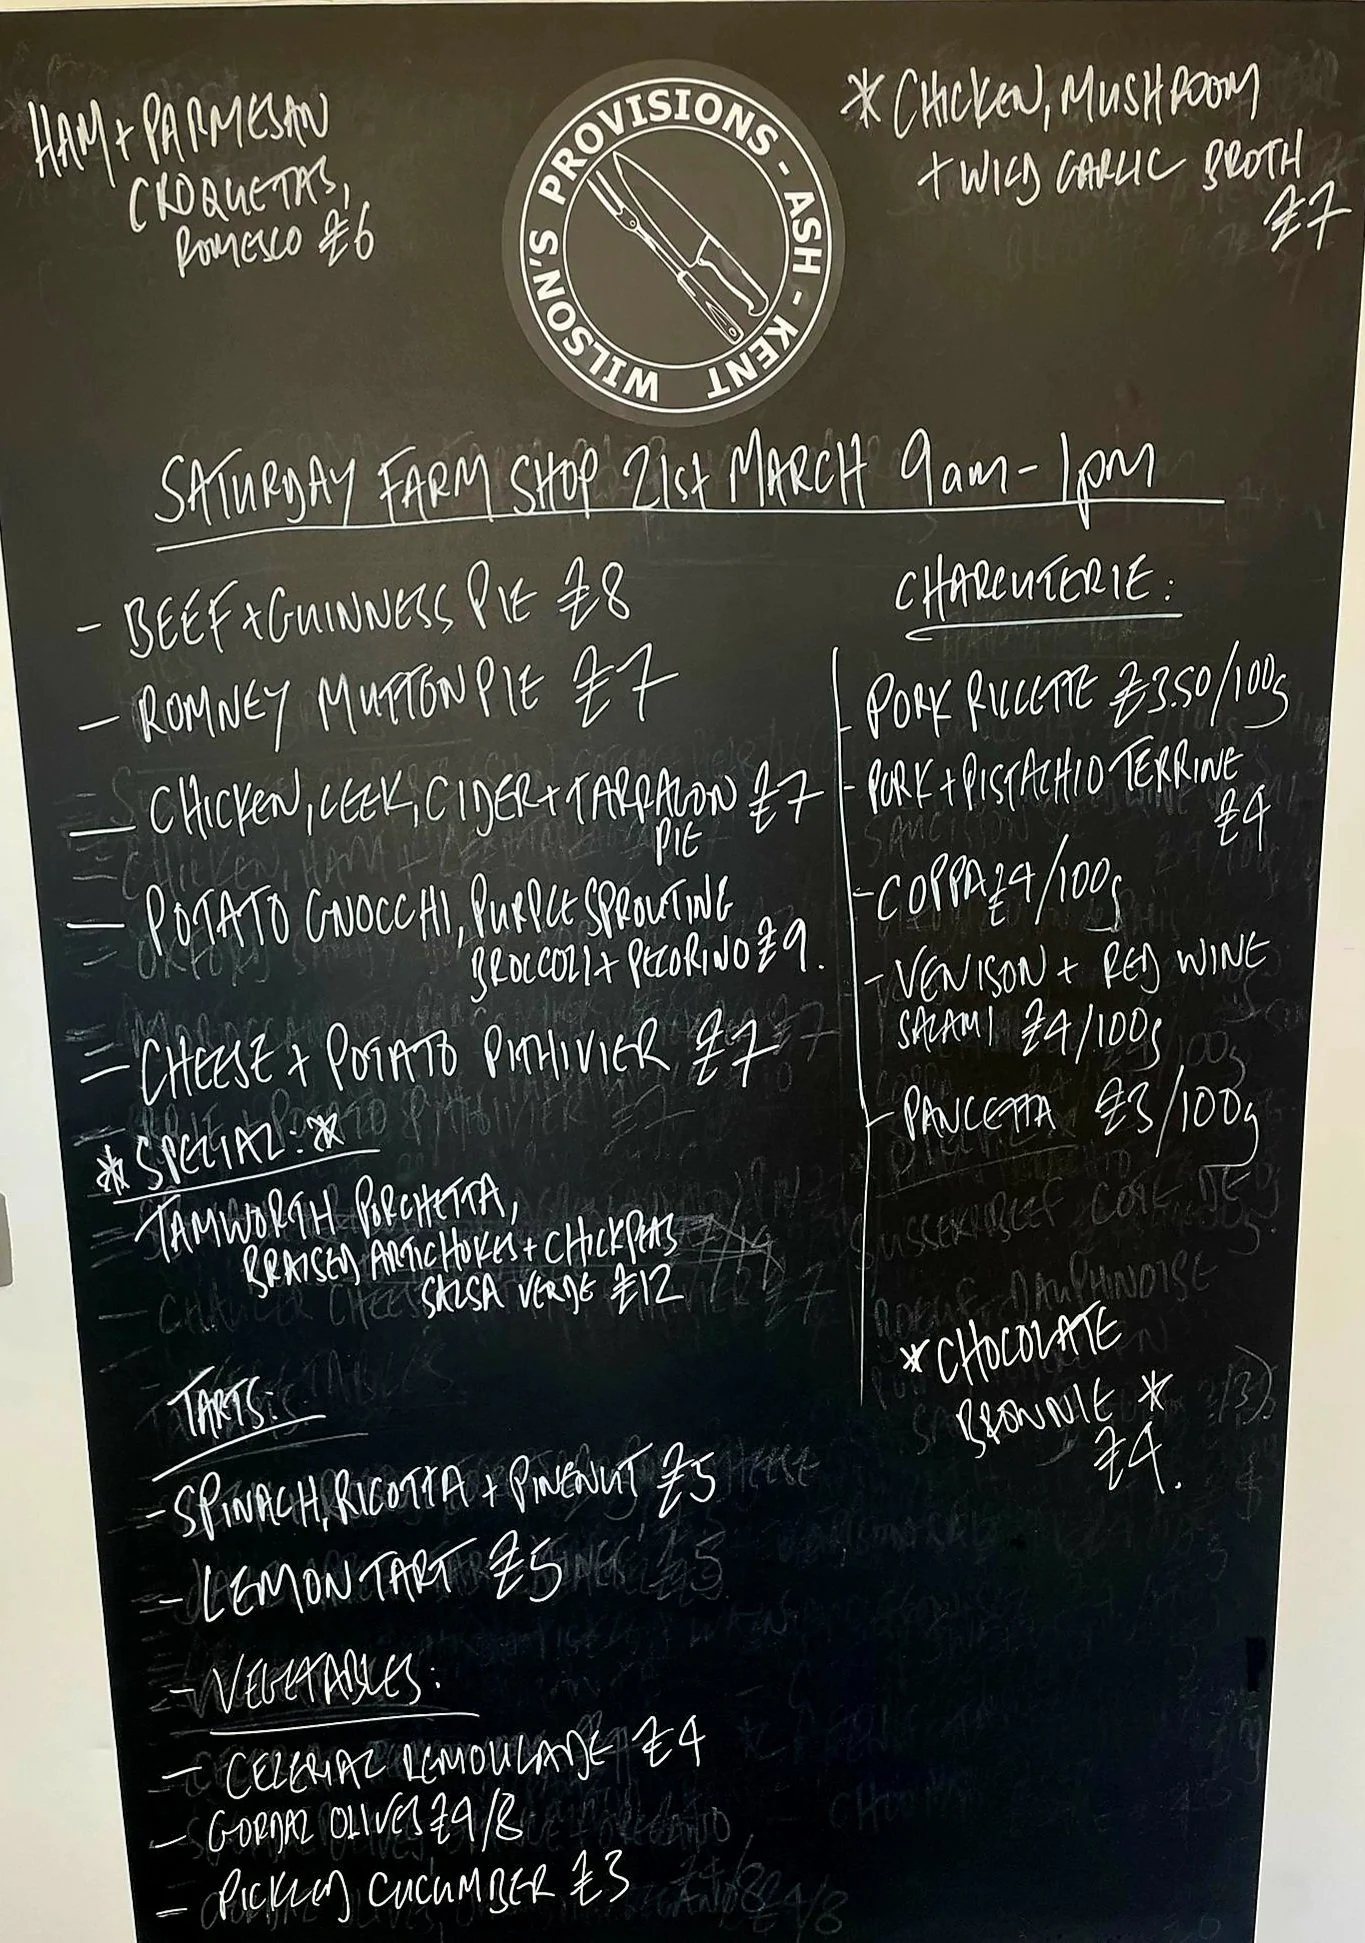 HAM + PARMESAN
CROQUETAS,
ROMESCO £6
WILSON'S PROVISIONS - ASH - KENT
*CHICKEN, MUSHROOM
+ WILD GARLIC BROTH
£7
SATURDAY FARM SHOP 21st MARCH 9am - 1pm
- BEEF + GUINNESS PIE £8
- ROMNEY MUTTON PIE £7
- CHICKEN, LEEK, CIDER + TARRAGON £7
PIE
- POTATO GNOCCHI, PURPLE SPROUTING
BROCCOLI + PECORINO £9.
- CHEESE + POTATO PITHIVIER £7
*SPECIAL:*
TAMWORTH PORCHETTA,
BRAISED ARTICHOKES + CHICKPEAS
SALSA VERDE £12
CHARCUTERIE:
- PORK RILLETTE £3.50/100g
- PORK + PISTACHIO TERRINE
£4
- COPPA £4/100g
- VENISON + RED WINE
SALAMI £4/100g
- PANCETTA £3/100g
*CHOCOLATE
BROWNIE *
£4.
TARTS:
- SPINACH, RICOTTA + PINENUT £5
- LEMON TART £5
- VEGETABLES:
- CELERIAC REMOULADE £4
- GORDAL OLIVES £4/8
- PICKLED CUCUMBER £3